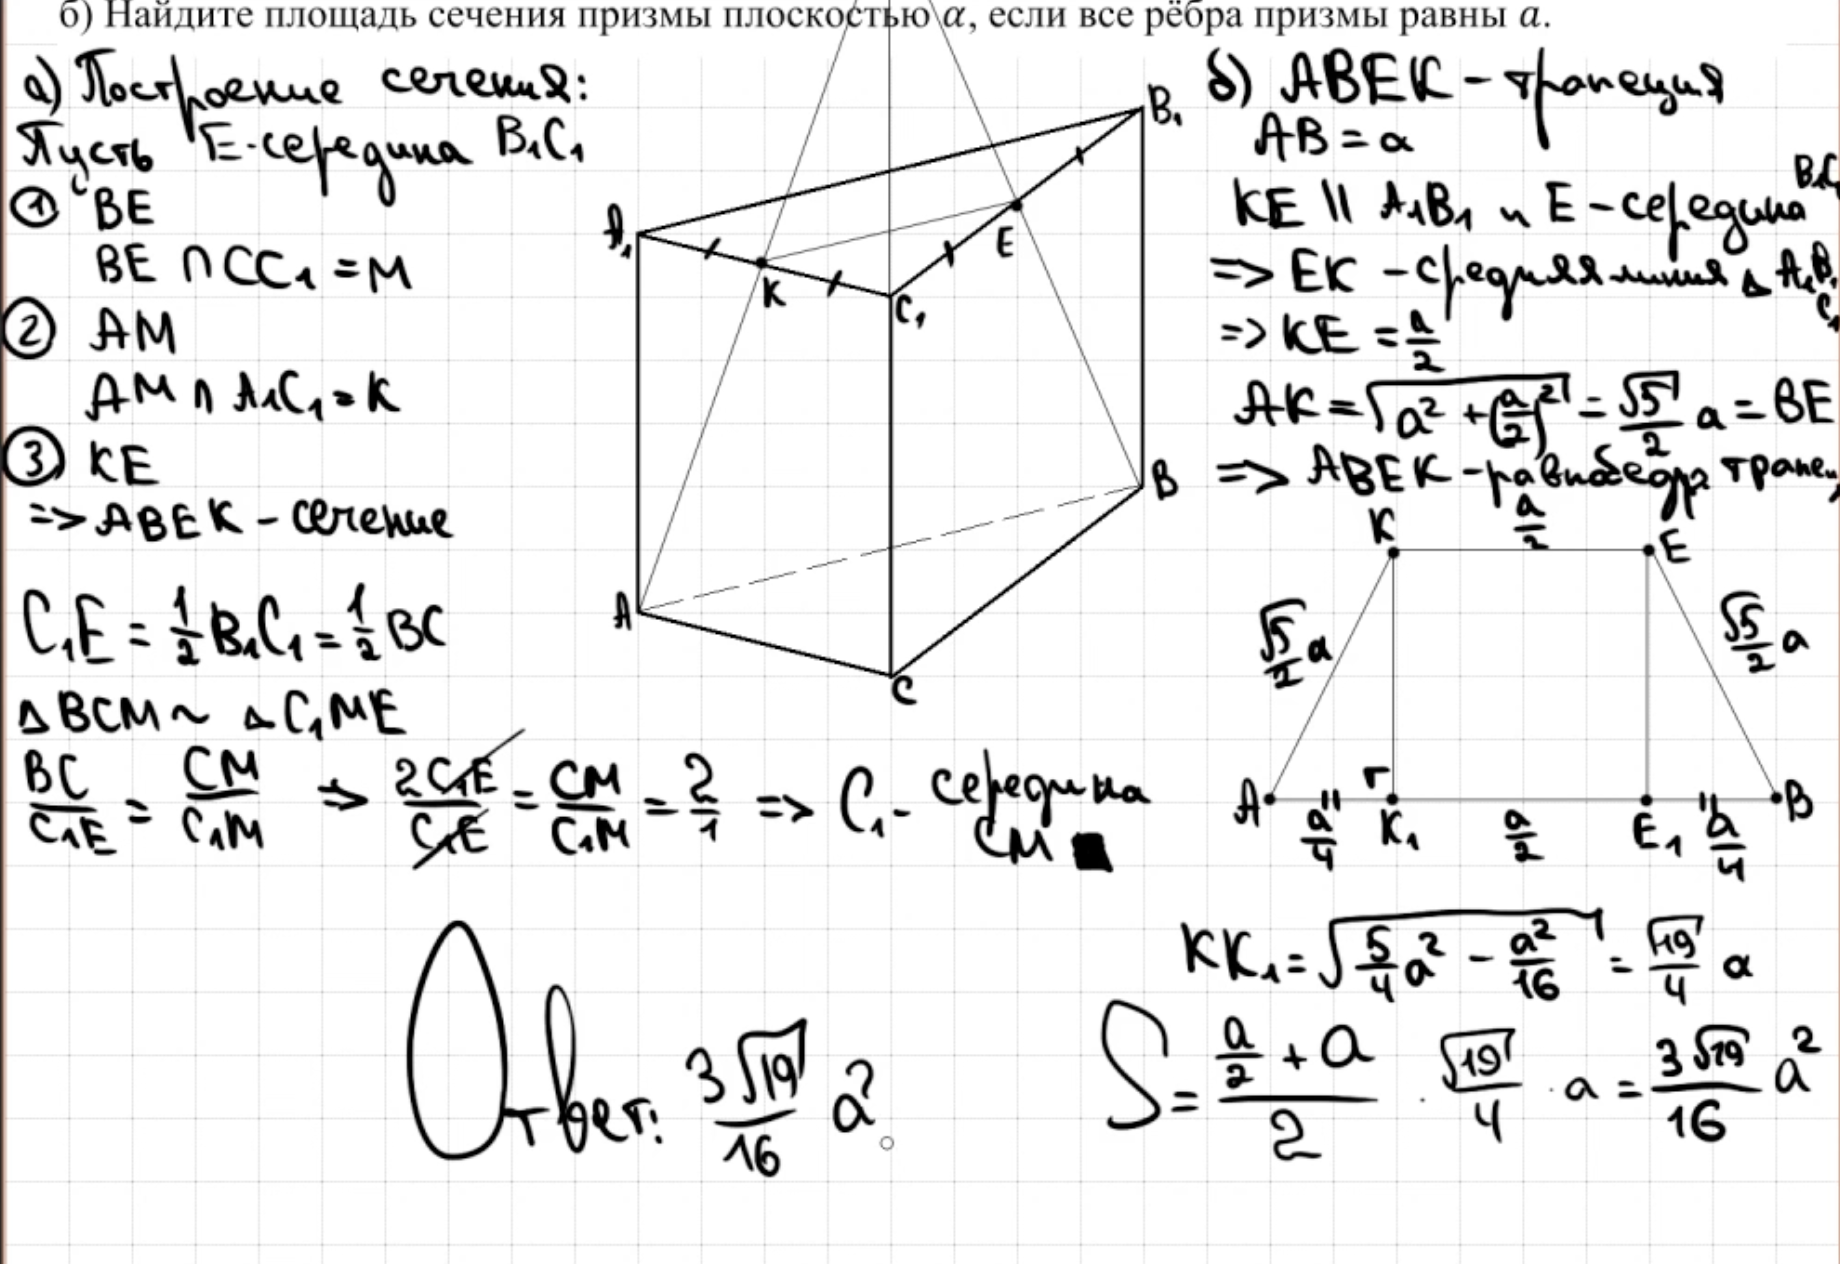 б) Найдите площадь сечения призмы плоскостью α, если все рёбра призмы равны a.
а) Построение сечения:
Пусть E-середина B₁C₁
① BE
BE ∩ CC₁ = M
② AM
AM ∩ A₁C₁ = K
③ KE
=> ABEK - сечение
C₁E = 1/2 B₁C₁ = 1/2 BC
△BCM ~ △C₁ME
BC/C₁E = CM/C₁M => 2C₁E/C₁E = CM/C₁M = 2/1 => C₁ - середина
CM
A₁
B₁
K
E
C₁
A
B
C
б) ABEK - трапеция
AB = a
KE || A₁B₁ и E - середина B₁C₁
=> EK - средняя линия △A₁B₁C₁
=> KE = a/2
AK = √(a² + (a/2)²) = √5/2 a = BE
=> ABEK - равнобедр трапец
K a/2 E
√5/2 a
√5/2 a
A a/4 K₁ a/2 E₁ a/4 B
KK₁ = √(5/4 a² - a²/16) = √19/4 a
S = (a/2 + a)/2 · √19/4 · a = 3√19/16 a²
Ответ: 3√19/16 a².